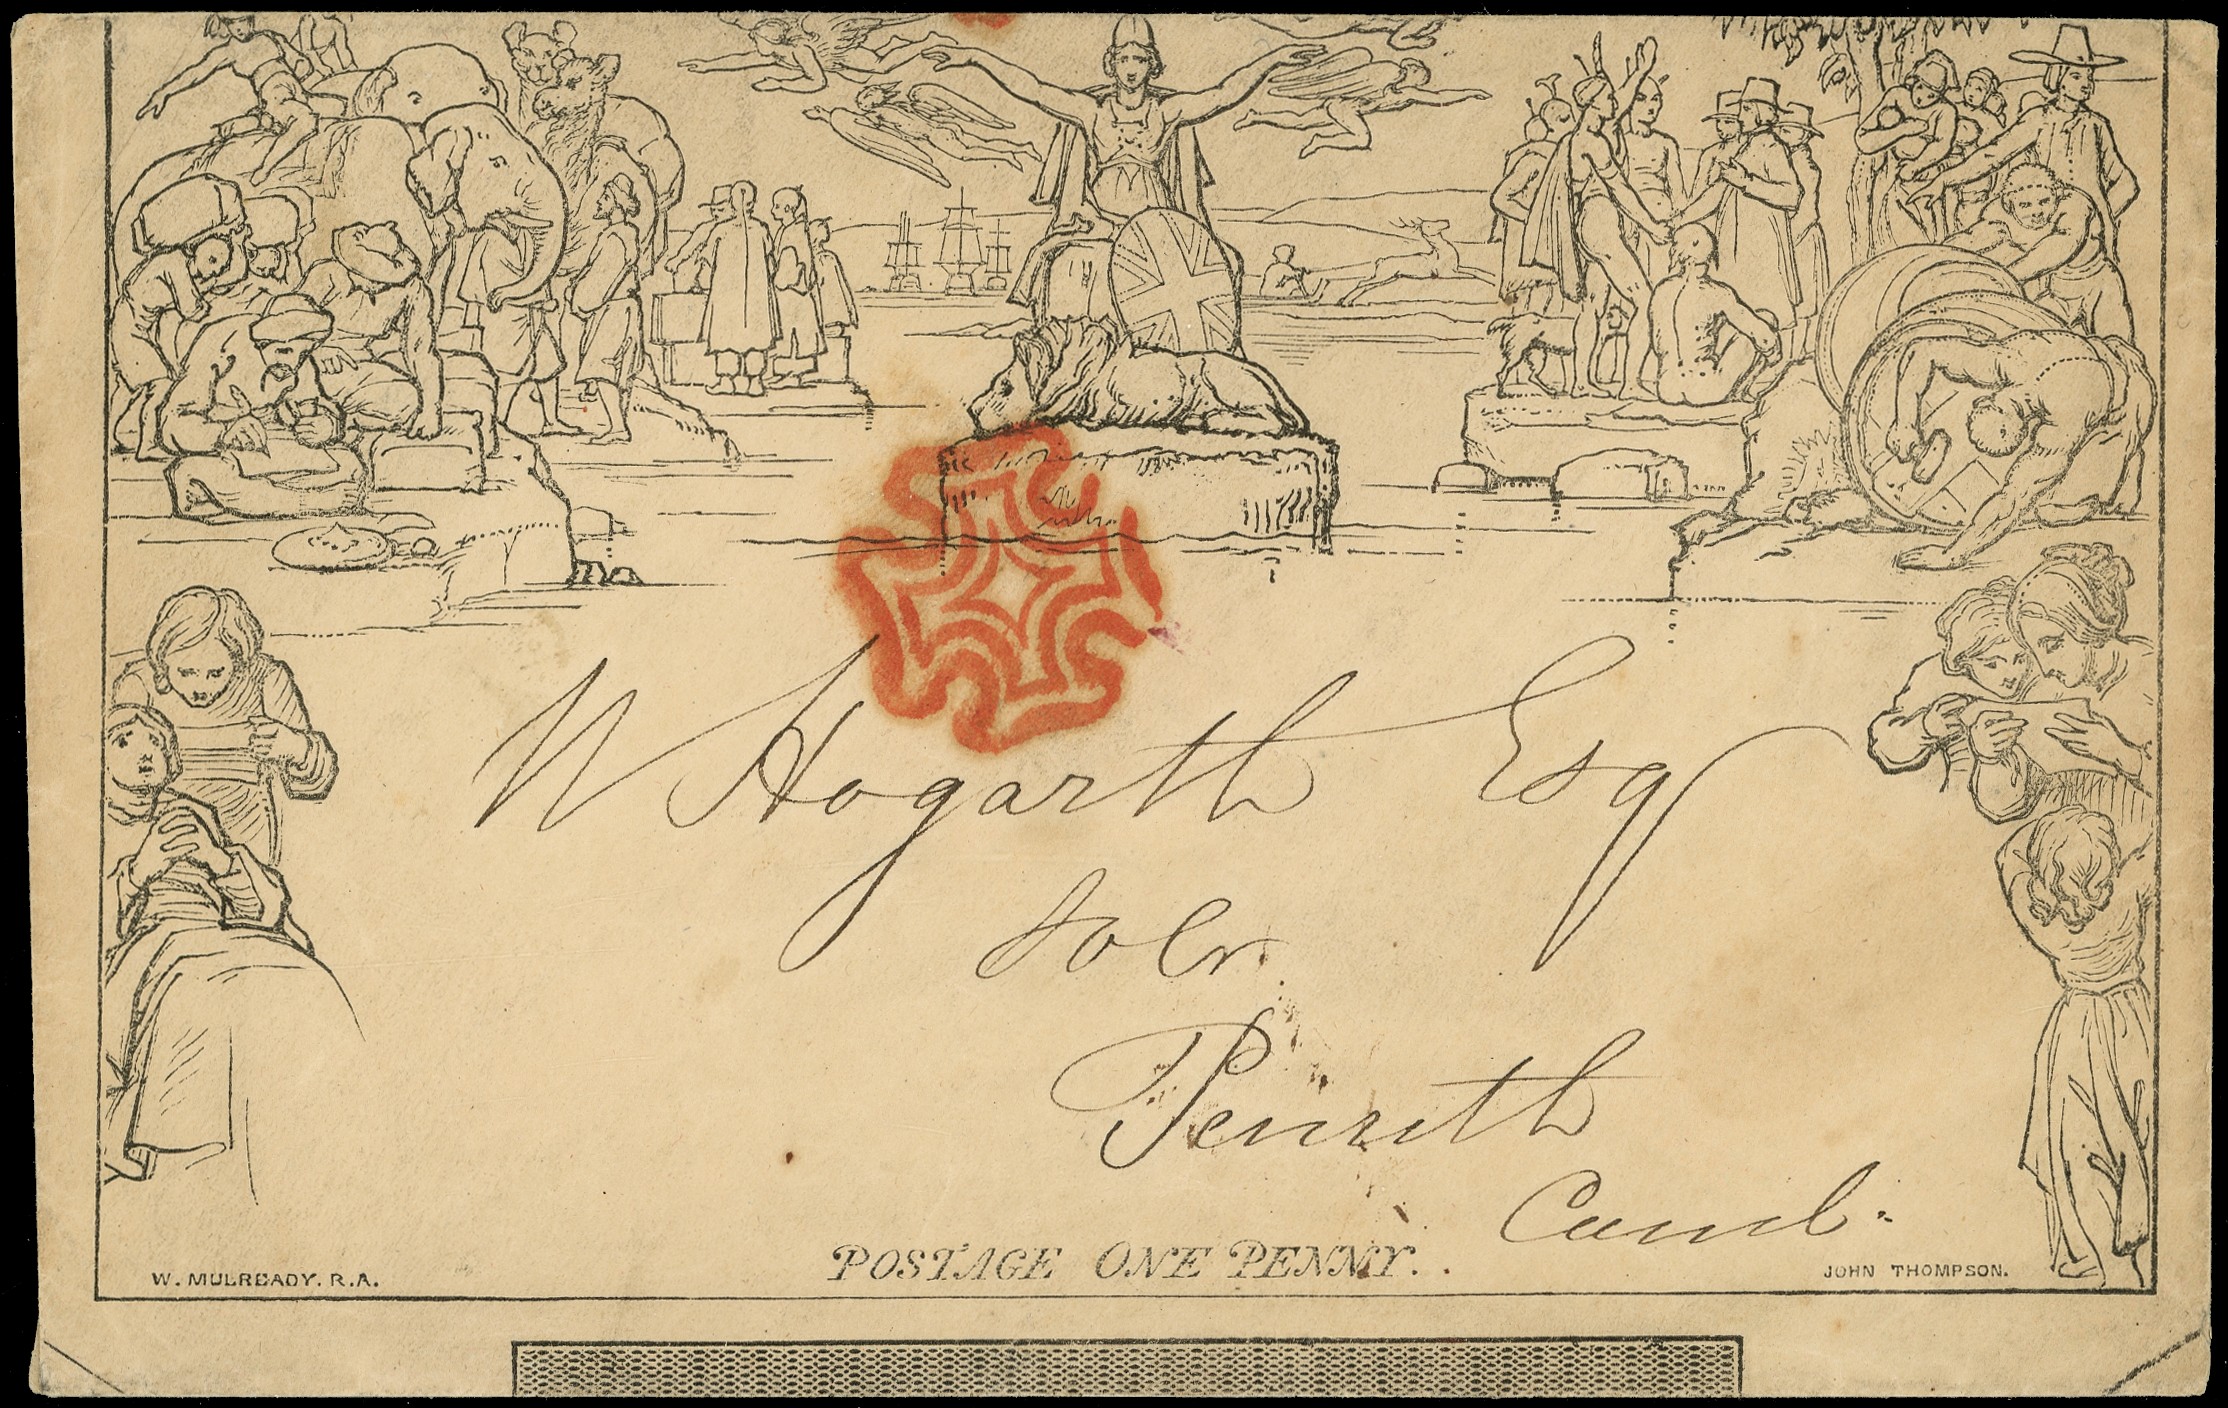 W Hogarth Esq
Solr
Penrith
Cumb:
POSTAGE ONE PENNY.
W. MULREADY. R.A.
JOHN THOMPSON.